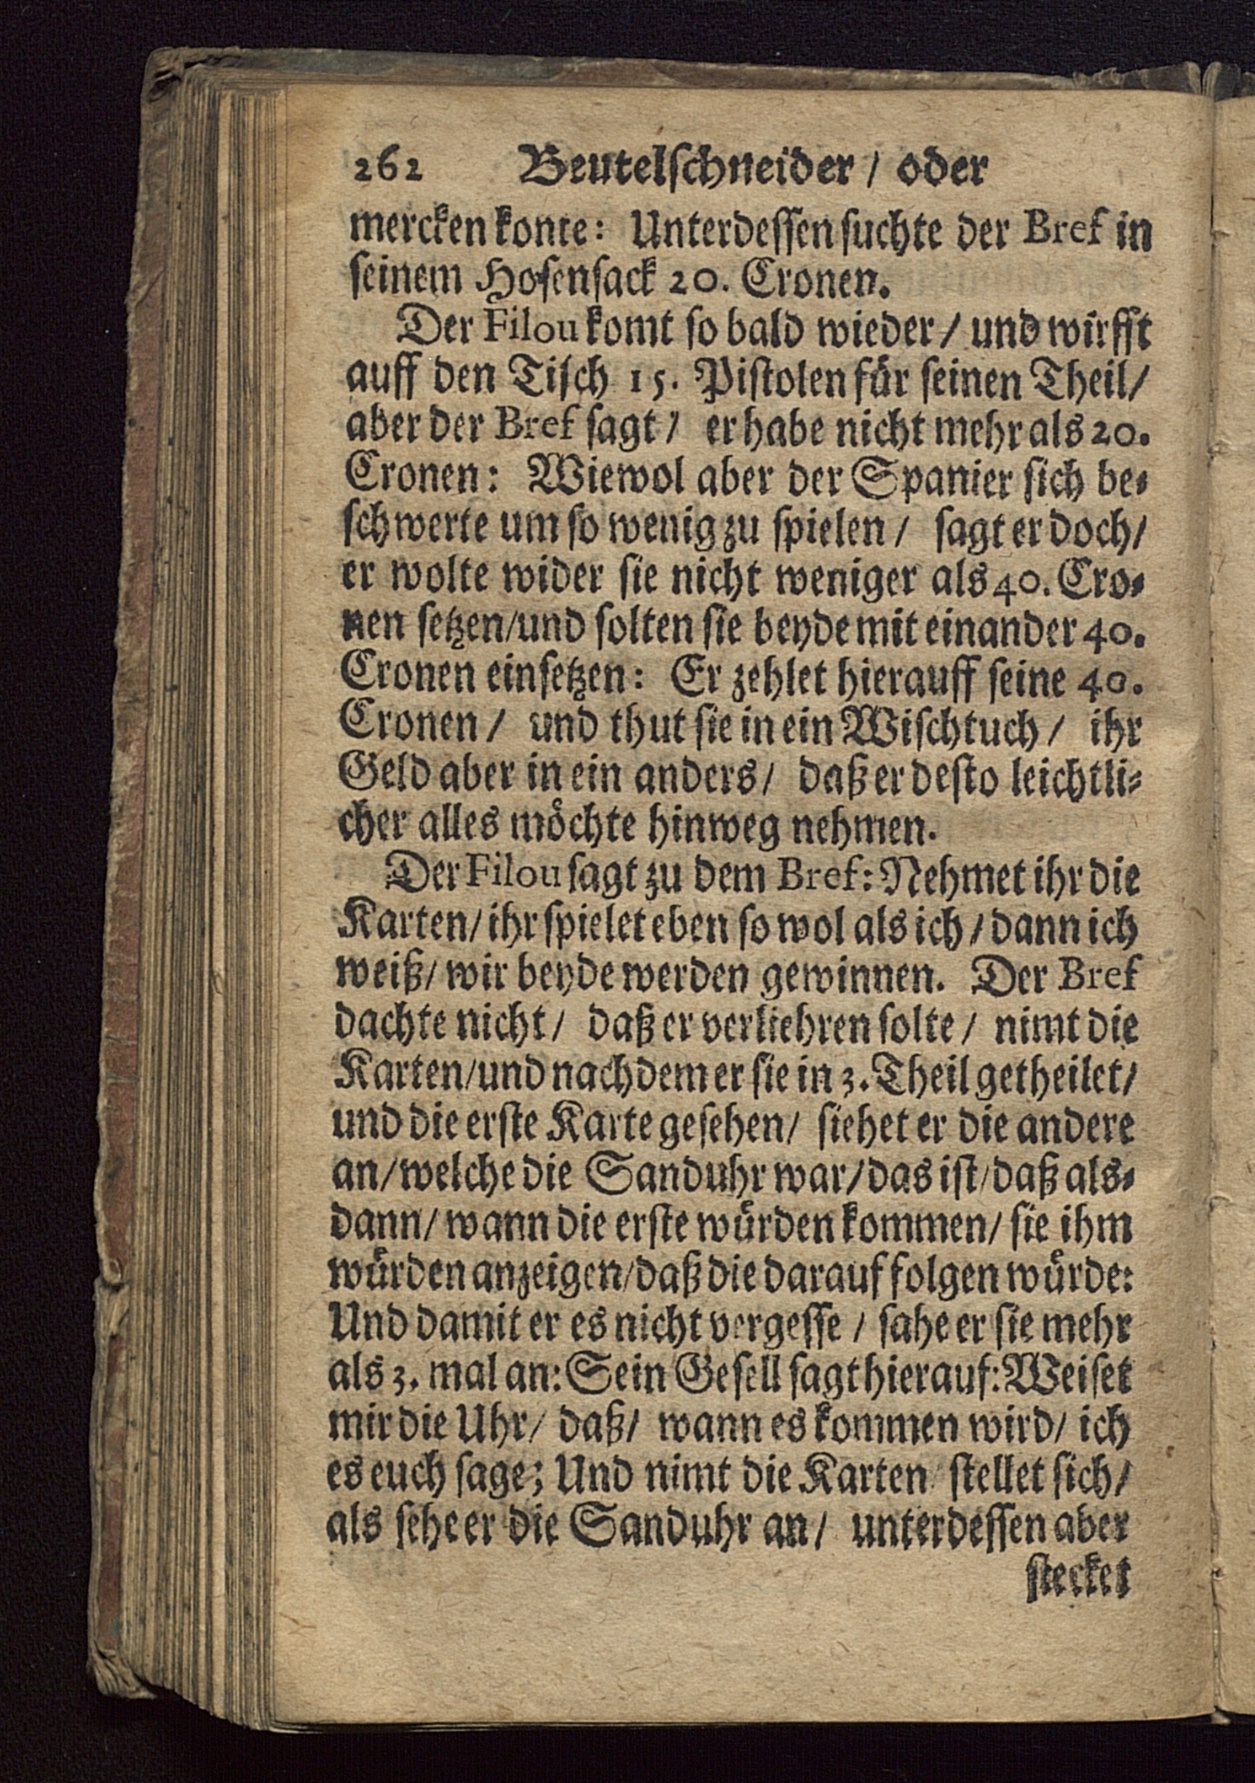 262 Beutelschneider / oder
mercken konte: Unterdessen suchte der Bref in
seinem Hosensack 20. Cronen.
Der Filou komt so bald wieder / und wirfft
auff den Tisch 15. Pistolen für seinen Theil /
aber der Bref sagt / er habe nicht mehr als 20.
Cronen: Wiewol aber der Spanier sich be-
schwerte um so wenig zu spielen / sagt er doch /
er wolte wider sie nicht weniger als 40. Cro-
nen setzen / und solten sie beyde mit einander 40.
Cronen einsetzen: Er zehlet hierauff seine 40.
Cronen / und thut sie in ein Wischtuch / ihr
Geld aber in ein anders / daß er desto leichtli-
cher alles möchte hinweg nehmen.
Der Filou sagt zu dem Bref: Nehmet ihr die
Karten / ihr spielet eben so wol als ich / dann ich
weiß / wir beyde werden gewinnen. Der Bref
dachte nicht / daß er verliehren solte / nimt die
Karten / und nachdem er sie in 3. Theil getheilet /
und die erste Karte gesehen / siehet er die andere
an / welche die Sanduhr war / das ist / daß als-
dann / wann die erste würden kommen / sie ihm
würden anzeigen / daß die darauf folgen würde:
Und damit er es nicht vergesse / sahe er sie mehr
als 3. mal an: Sein Gesell sagt hierauf: Weiset
mir die Uhr / daß / wann es kommen wird / ich
es euch sage; Und nimt die Karten / stellet sich /
als sehe er die Sanduhr an / unterdessen aber
stecket